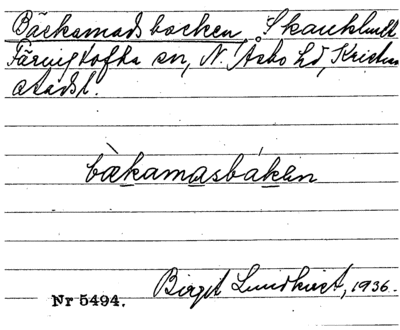 Bäckamadsbacken, Skånklint
Färingtofta sn, N. Åsbo hd, Kristian
stadsl.
bækamasbákən
Birgit Lundkvist, 1936.
Nr 5494.